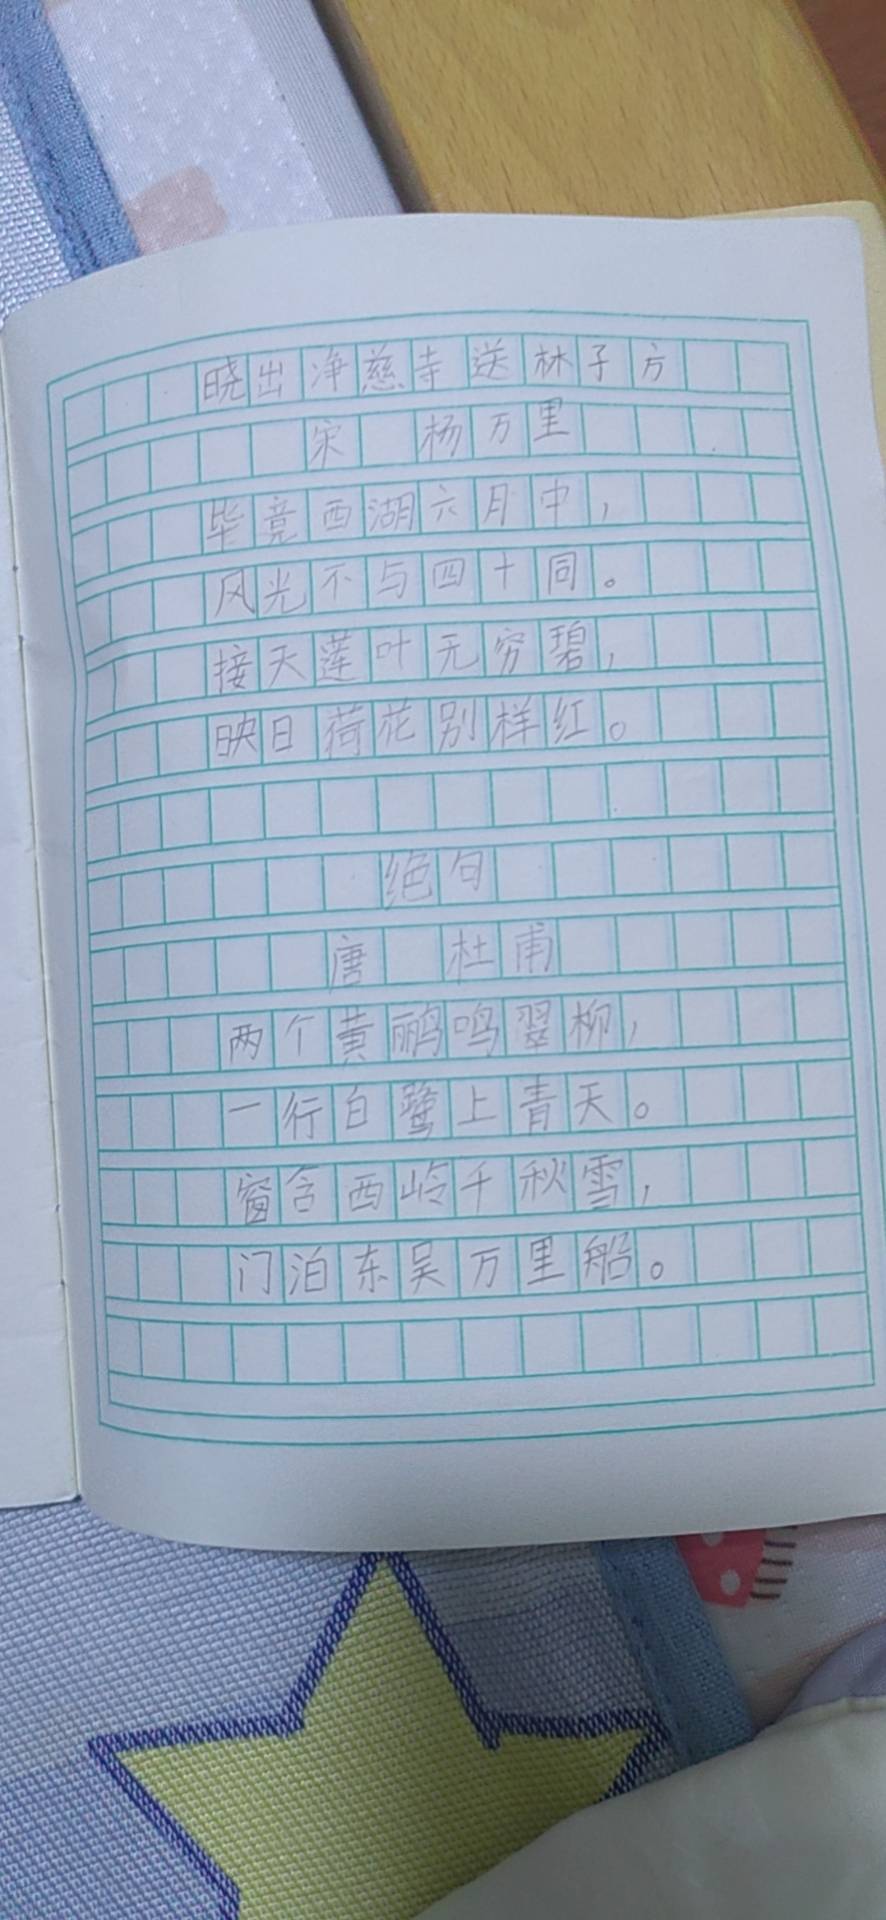 晓出净慈寺送林子方
宋 杨万里
毕竟西湖六月中，
风光不与四十同。
接天莲叶无穷碧，
映日荷花别样红。
绝句
唐 杜甫
两个黄鹂鸣翠柳，
一行白鹭上青天。
窗含西岭千秋雪，
门泊东吴万里船。